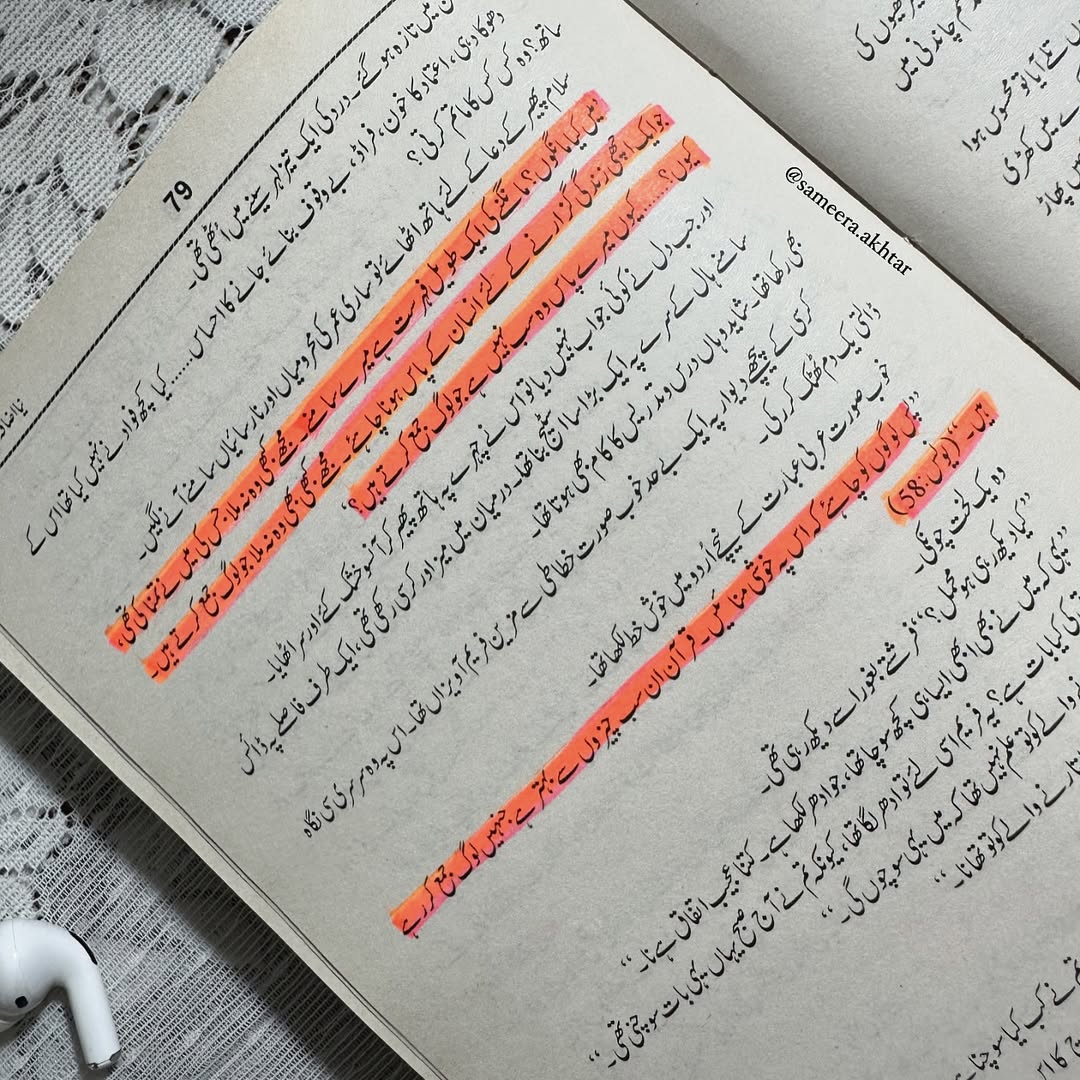 79
میں تازہ ہو گئے۔ درد کی ایک تیز لہر سینے میں اٹھی تھی۔
دھوکا دہی، اعتماد کا خون، فراڈ، بے وقوف بنائے جانے کا احساس...... کیا کچھ فواد نے نہیں کیا تھا اس کے
ساتھ؟ وہ کس کس کا ماتم کرتی؟
سلام پھیر کے دعا کے لئے ہاتھ اٹھائے تو ساری عمر کی محرومیاں اور نارسائیاں سامنے آنے لگیں۔
”میں کیا مانگوں؟ مانگنے کی ایک طویل فہرست ہے میرے سامنے۔ مجھے کبھی وہ نہ ملا جس کی میں نے تمنا کی تھی،
جو ایک اچھی زندگی گزارنے کے لئے انسان کے پاس ہونا چاہئے۔ مجھے کبھی بھی وہ نہ ملا جو لوگ جمع کرتے ہیں۔
کیوں؟...... کیوں میرے پاس وہ سب نہیں ہے جو لوگ جمع کرتے ہیں؟“
اور جب دل نے کوئی جواب نہیں دیا تو اس نے چہرے پہ ہاتھ پھیر کر آنسو خشک کئے اور سر اٹھایا۔
سامنے ہال کے سرے پہ ایک بڑا سا اسٹیج بنا تھا۔ درمیان میں میز اور کرسی رکھی تھی، ایک طرف فاصلے پہ ڈائس
بھی رکھا تھا۔ شاید وہاں درس و تدریس کا کام بھی ہوتا تھا۔
کرسی کے پیچھے دیوار پہ ایک بے حد خوب صورت خطاطی سے مزین فریم آویزاں تھا۔ اس پہ وہ سرسری سی نگاہ
ڈالتی یک دم ٹھٹک کر رکی۔
خوب صورت عربی عبارت کے نیچے اُردو میں خوش خط لکھا تھا۔
”پس لوگوں کو چاہئے کہ اس پہ خوشی منائیں۔ قرآن ان سب چیزوں سے بہتر ہے جنہیں لوگ جمع کر رہے
ہیں۔“ (یونس:58)
وہ یک لخت چونکی۔
”کیا دیکھ رہی ہو محمل؟“ فرشتے بغور اسے دیکھ رہی تھی۔
”یہی کہ میں نے بھی ابھی ایسا ہی کچھ سوچا تھا، جو ادھر لکھا ہے۔ کتنا عجیب اتفاق ہے نا۔“
کی کیا بات ہے؟ یہ فریم اسی لئے تو ادھر لگا تھا، کیونکہ تم نے آج صبح یہاں یہی بات سوچنی تھی۔“
والے کو تو علم نہیں تھا کہ میں یہی سوچوں گی۔“
اتارنے والے کو تو تھا نا۔“
نے کب کیا سوچنا ہے
کا اس
کی
چاندنی میں
تلے آیا تو محسوس ہوا
میں کھڑی
پھاڑ
@sameera.akhtar